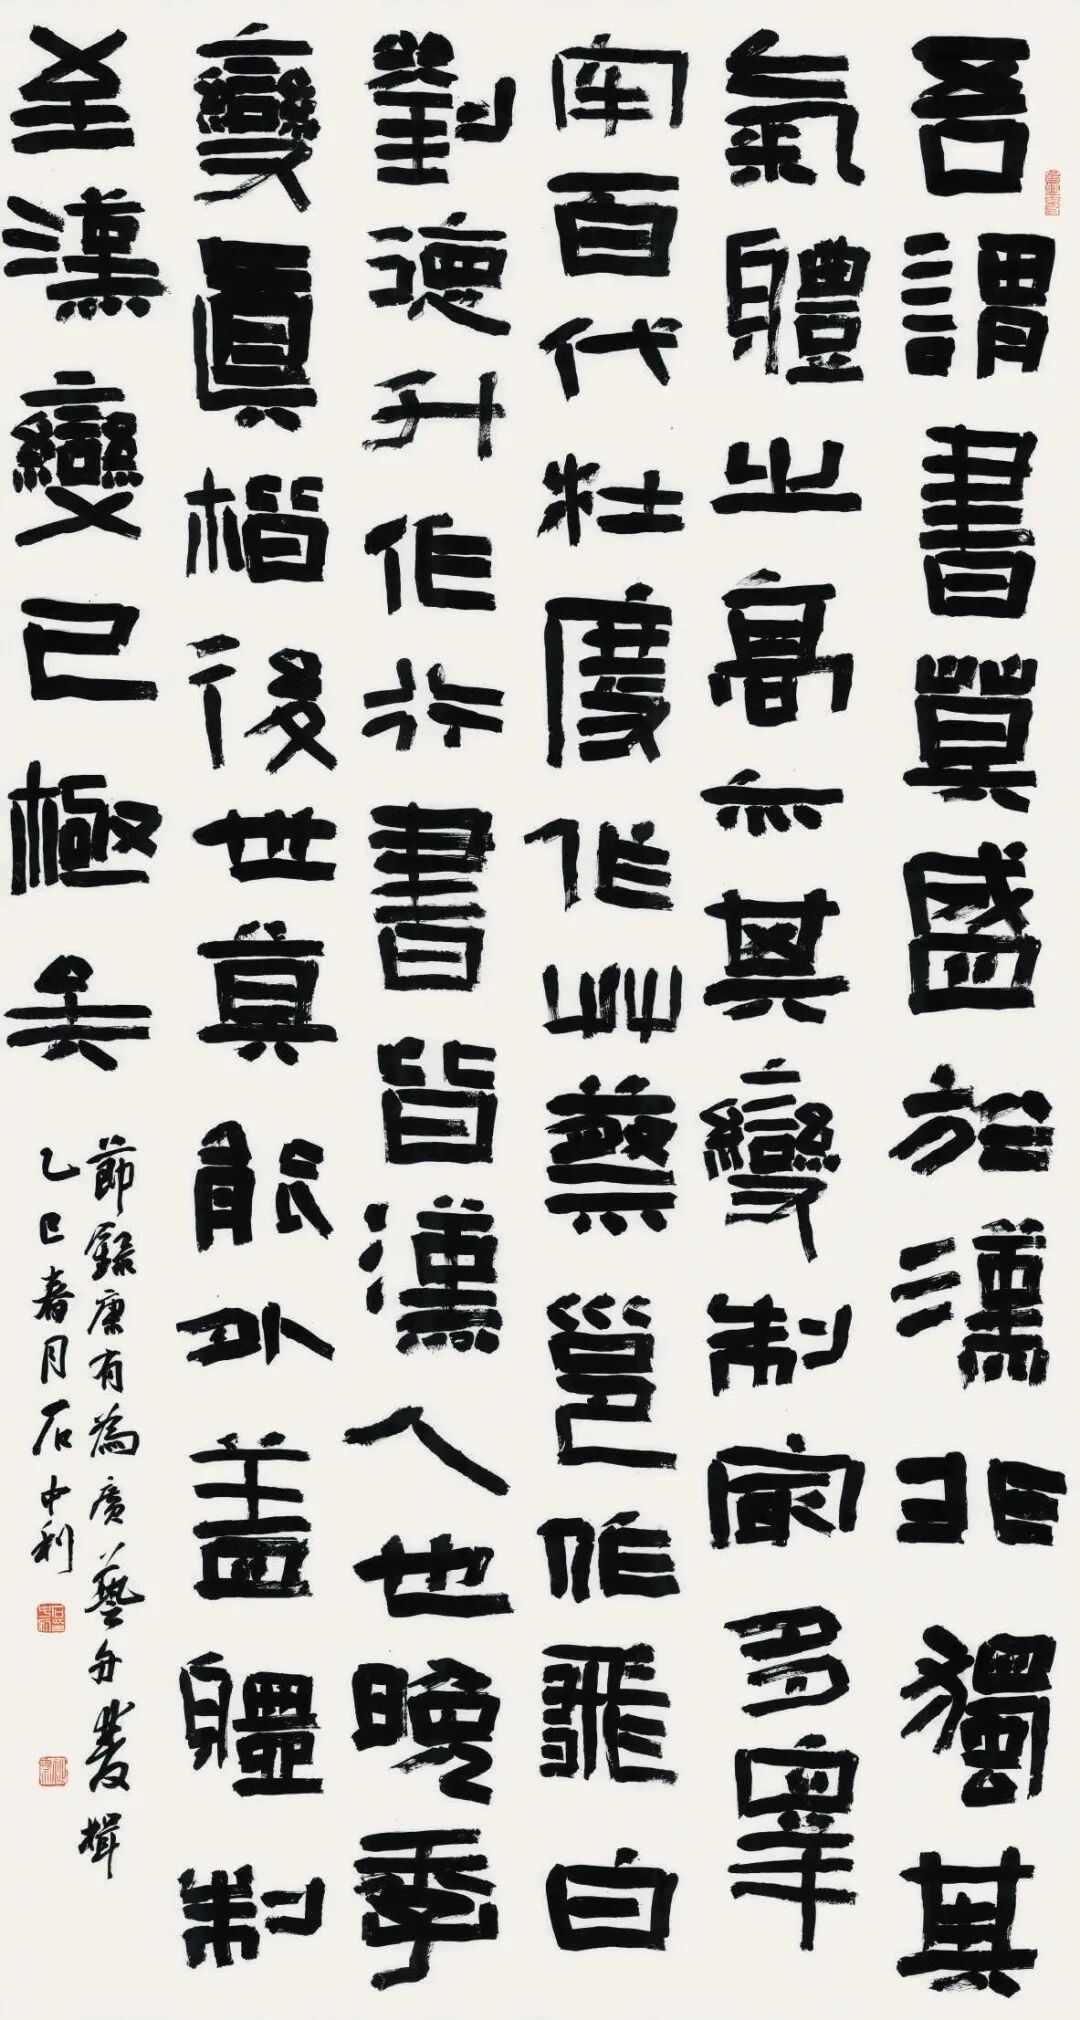 吾謂書莫盛於漢非獨其
氣體之高亦其變制最多皋
牢百代杜度作艸蔡邕作飛白
劉德升作行書皆漢人也晚季
變真楷後世莫能外蓋體制
至漢變已極矣
節錄康有為廣藝舟雙楫
乙巳春月石中利